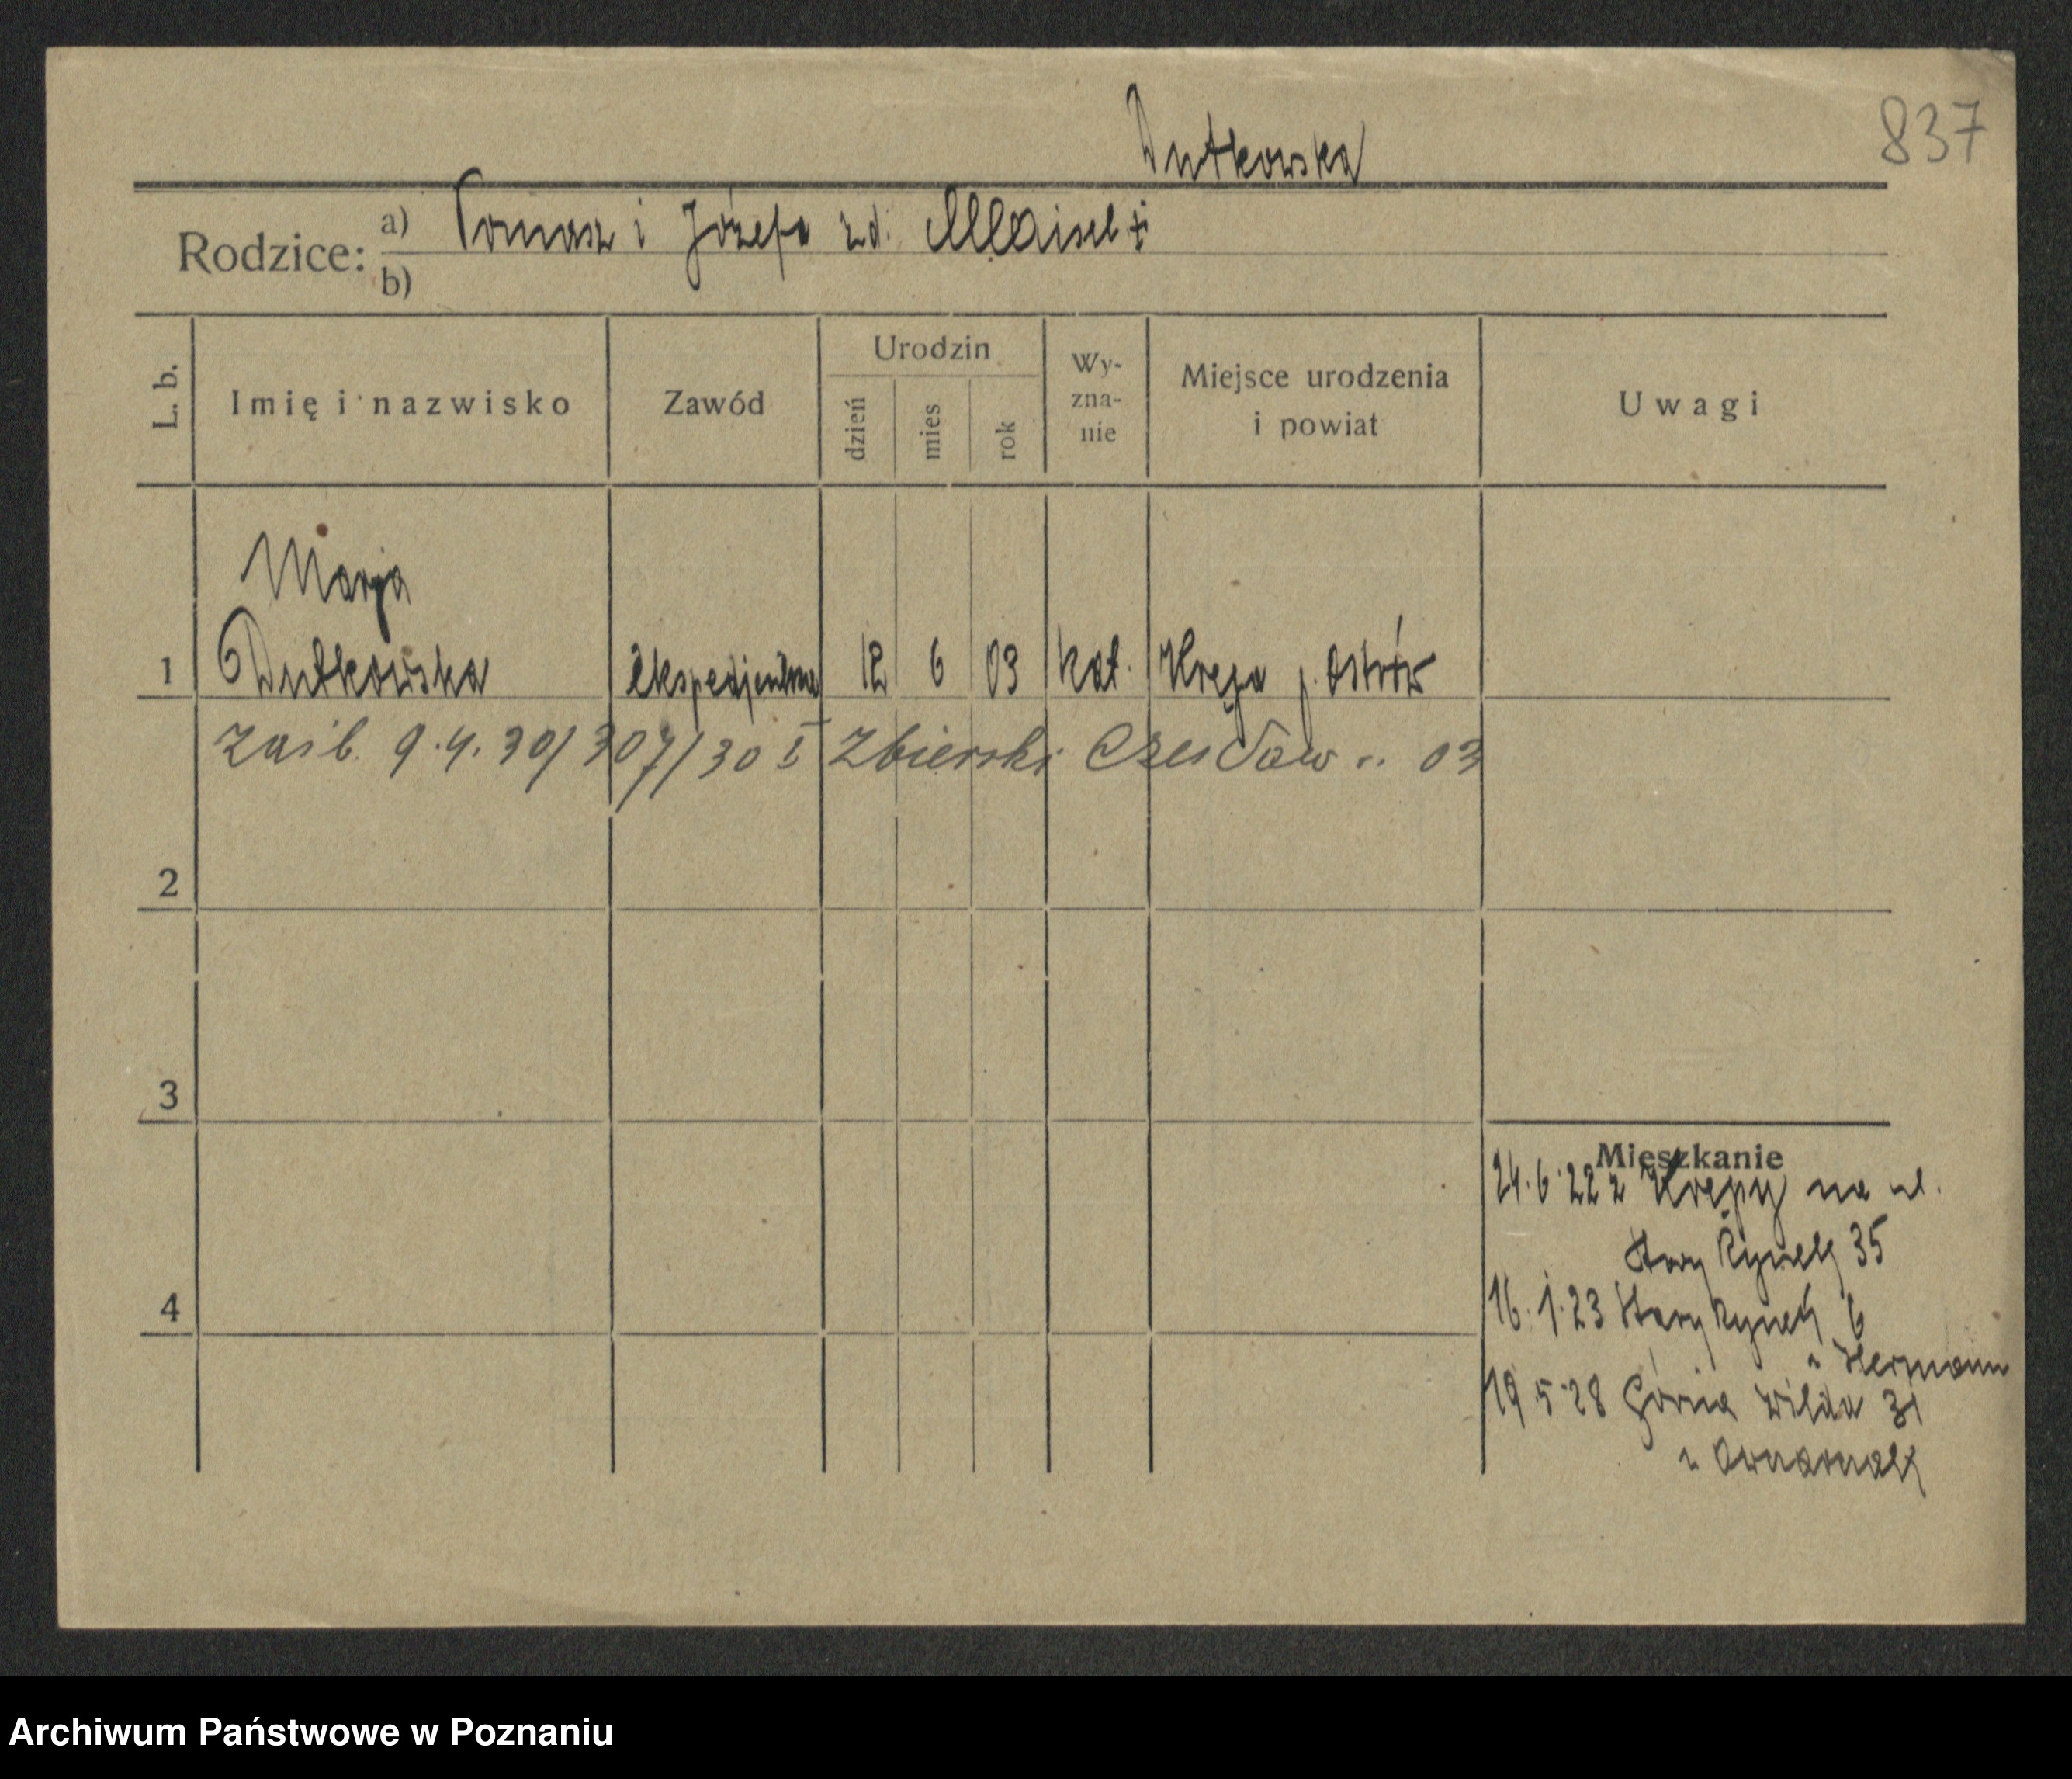 837
Dutkowska
Rodzice: a) Tomasz i Józefa zd. Maisel
b)
L. b. Imię i nazwisko Zawód Urodzin dzień mies rok Wy-zna-nie Miejsce urodzenia i powiat Uwagi
Marja
1 Dutkowska ekspedjentka 12 6 03 kat. Krępa p. Ostrów
zaśl. 9.4.30/307/30 I Zbierski Czesław 03
2
3
4
Mieszkanie
24.6.22 z Krępy na ul.
Stary Rynek 35
16.1.23 Stary Rynek 6
u Hermann
19.5.28 Górna Wilda 31
Archiwum Państwowe w Poznaniu